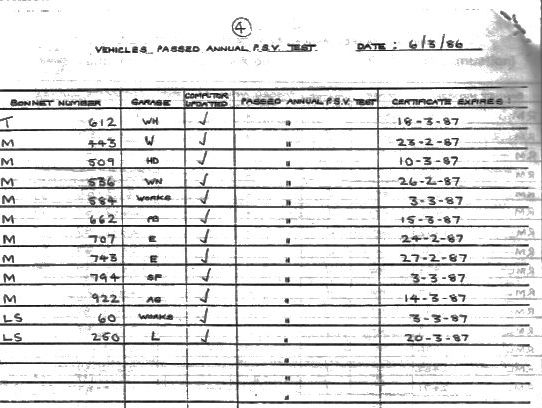 4
VEHICLES PASSED ANNUAL P.S.V. TEST DATE : 6/3/86
BONNET NUMBER GARAGE COMPUTER UPDATED PASSED ANNUAL P.S.V. TEST CERTIFICATE EXPIRES :
T 612 WH ✓ " 18-3-87
M 443 W ✓ " 23-2-87
M 509 HD ✓ " 10-3-87
M 536 WN ✓ " 26-2-87
M 584 WORKS ✓ " 3-3-87
M 662 ✓ " 15-3-87
M 707 E ✓ " 24-2-87
M 743 E ✓ " 27-2-87
M 794 SF ✓ " 3-3-87
M 922 AG ✓ " 14-3-87
LS 60 WORKS ✓ " 3-3-87
LS 250 L ✓ " 20-3-87
"
"
"